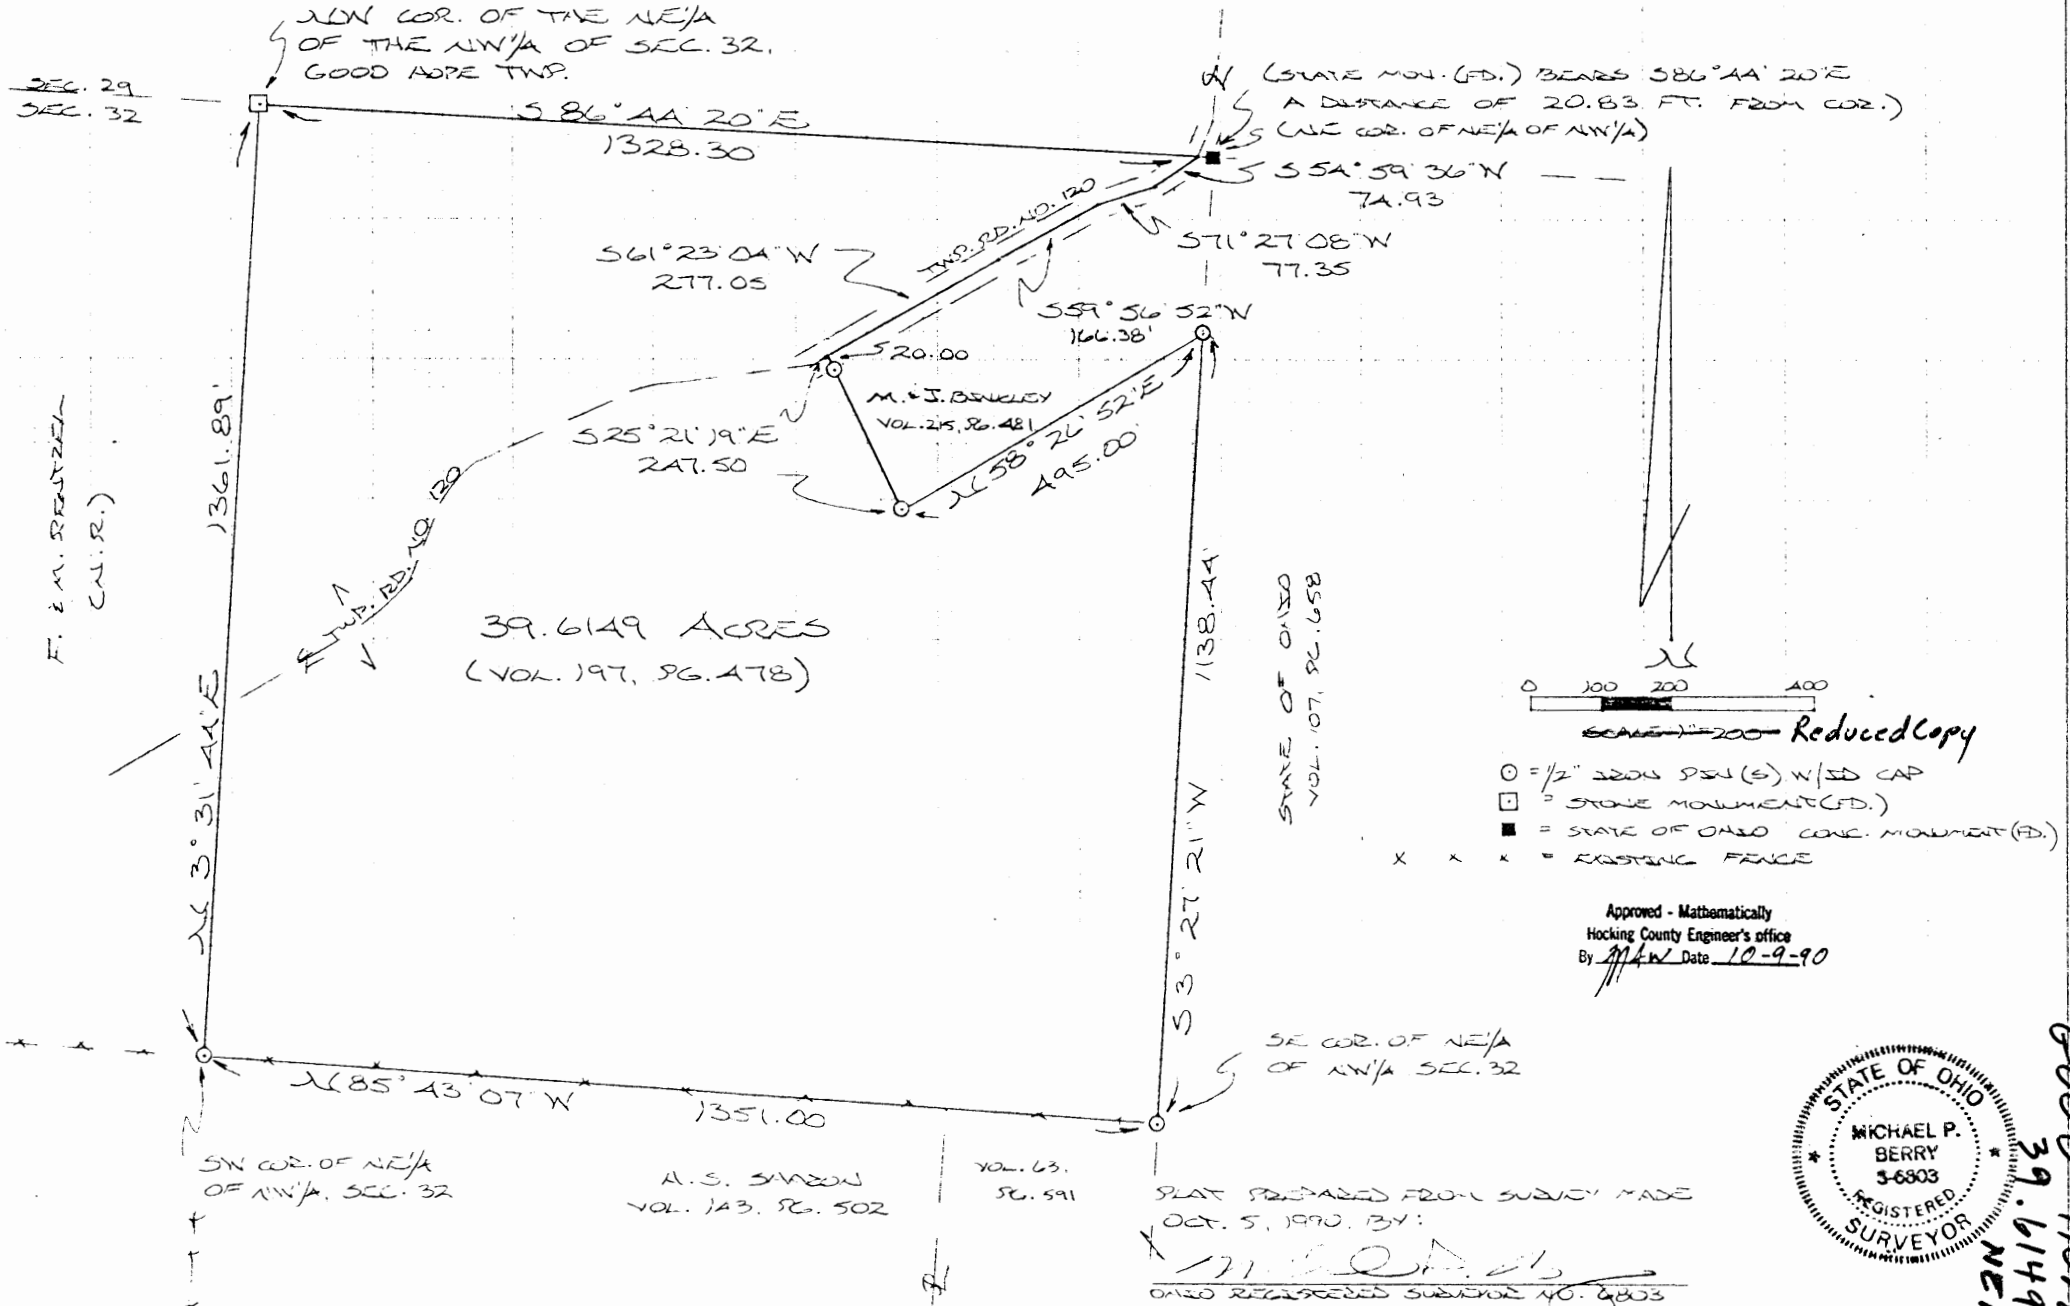 NW COR. OF THE NE 1/4
OF THE NW 1/4 OF SEC. 32,
GOOD HOPE TWP.
SEC. 29
SEC. 32
S 86° 44' 20" E
1328.30
(STATE MON. (FD.) BEARS S86° 44' 20"E
A DISTANCE OF 20.83 FT. FROM COR.)
(NE COR. OF NE 1/4 OF NW 1/4)
S 54° 59' 36" W
74.93
TWP. RD. NO. 120
S71° 27' 08" W
77.35
S61° 23' 04" W
277.05
S59° 56' 52" W
166.38'
20.00
M. & J. BINKLEY
VOL. 215, PG. 481
S25° 21' 19" E
247.50
N 58° 26' 52" E
495.00'
1361.89'
N 3° 31' 44" E
F. & M.
(N.R.)
TWP. RD. NO. 120
39.6149 ACRES
(VOL. 197, PG. 478)
1138.44'
S 3° 27' 21" W
STATE OF OHIO
VOL. 107, PG. 658
N
0 100 200 400
SCALE 1" = 200 Reduced Copy
= 1/2" IRON PIN (S) W/ID CAP
= STONE MONUMENT (FD.)
= STATE OF OHIO CONC. MONUMENT (FD.)
x x x = EXISTING FENCE
Approved - Mathematically
Hocking County Engineer's office
By MAW Date 10-9-90
SE COR. OF NE 1/4
OF NW 1/4 SEC. 32
N 85° 43' 07" W 1351.00
SW COR. OF NE 1/4
OF NW 1/4, SEC. 32
VOL. 143, PG. 502
VOL. 63,
PG. 591
PLAT PREPARED FROM SURVEY MADE
OCT. 5, 1990, BY:
OHIO REGISTERED SURVEYOR NO. 6803
STATE OF OHIO
MICHAEL P.
BERRY
S-6803
REGISTERED
SURVEYOR
39.6149